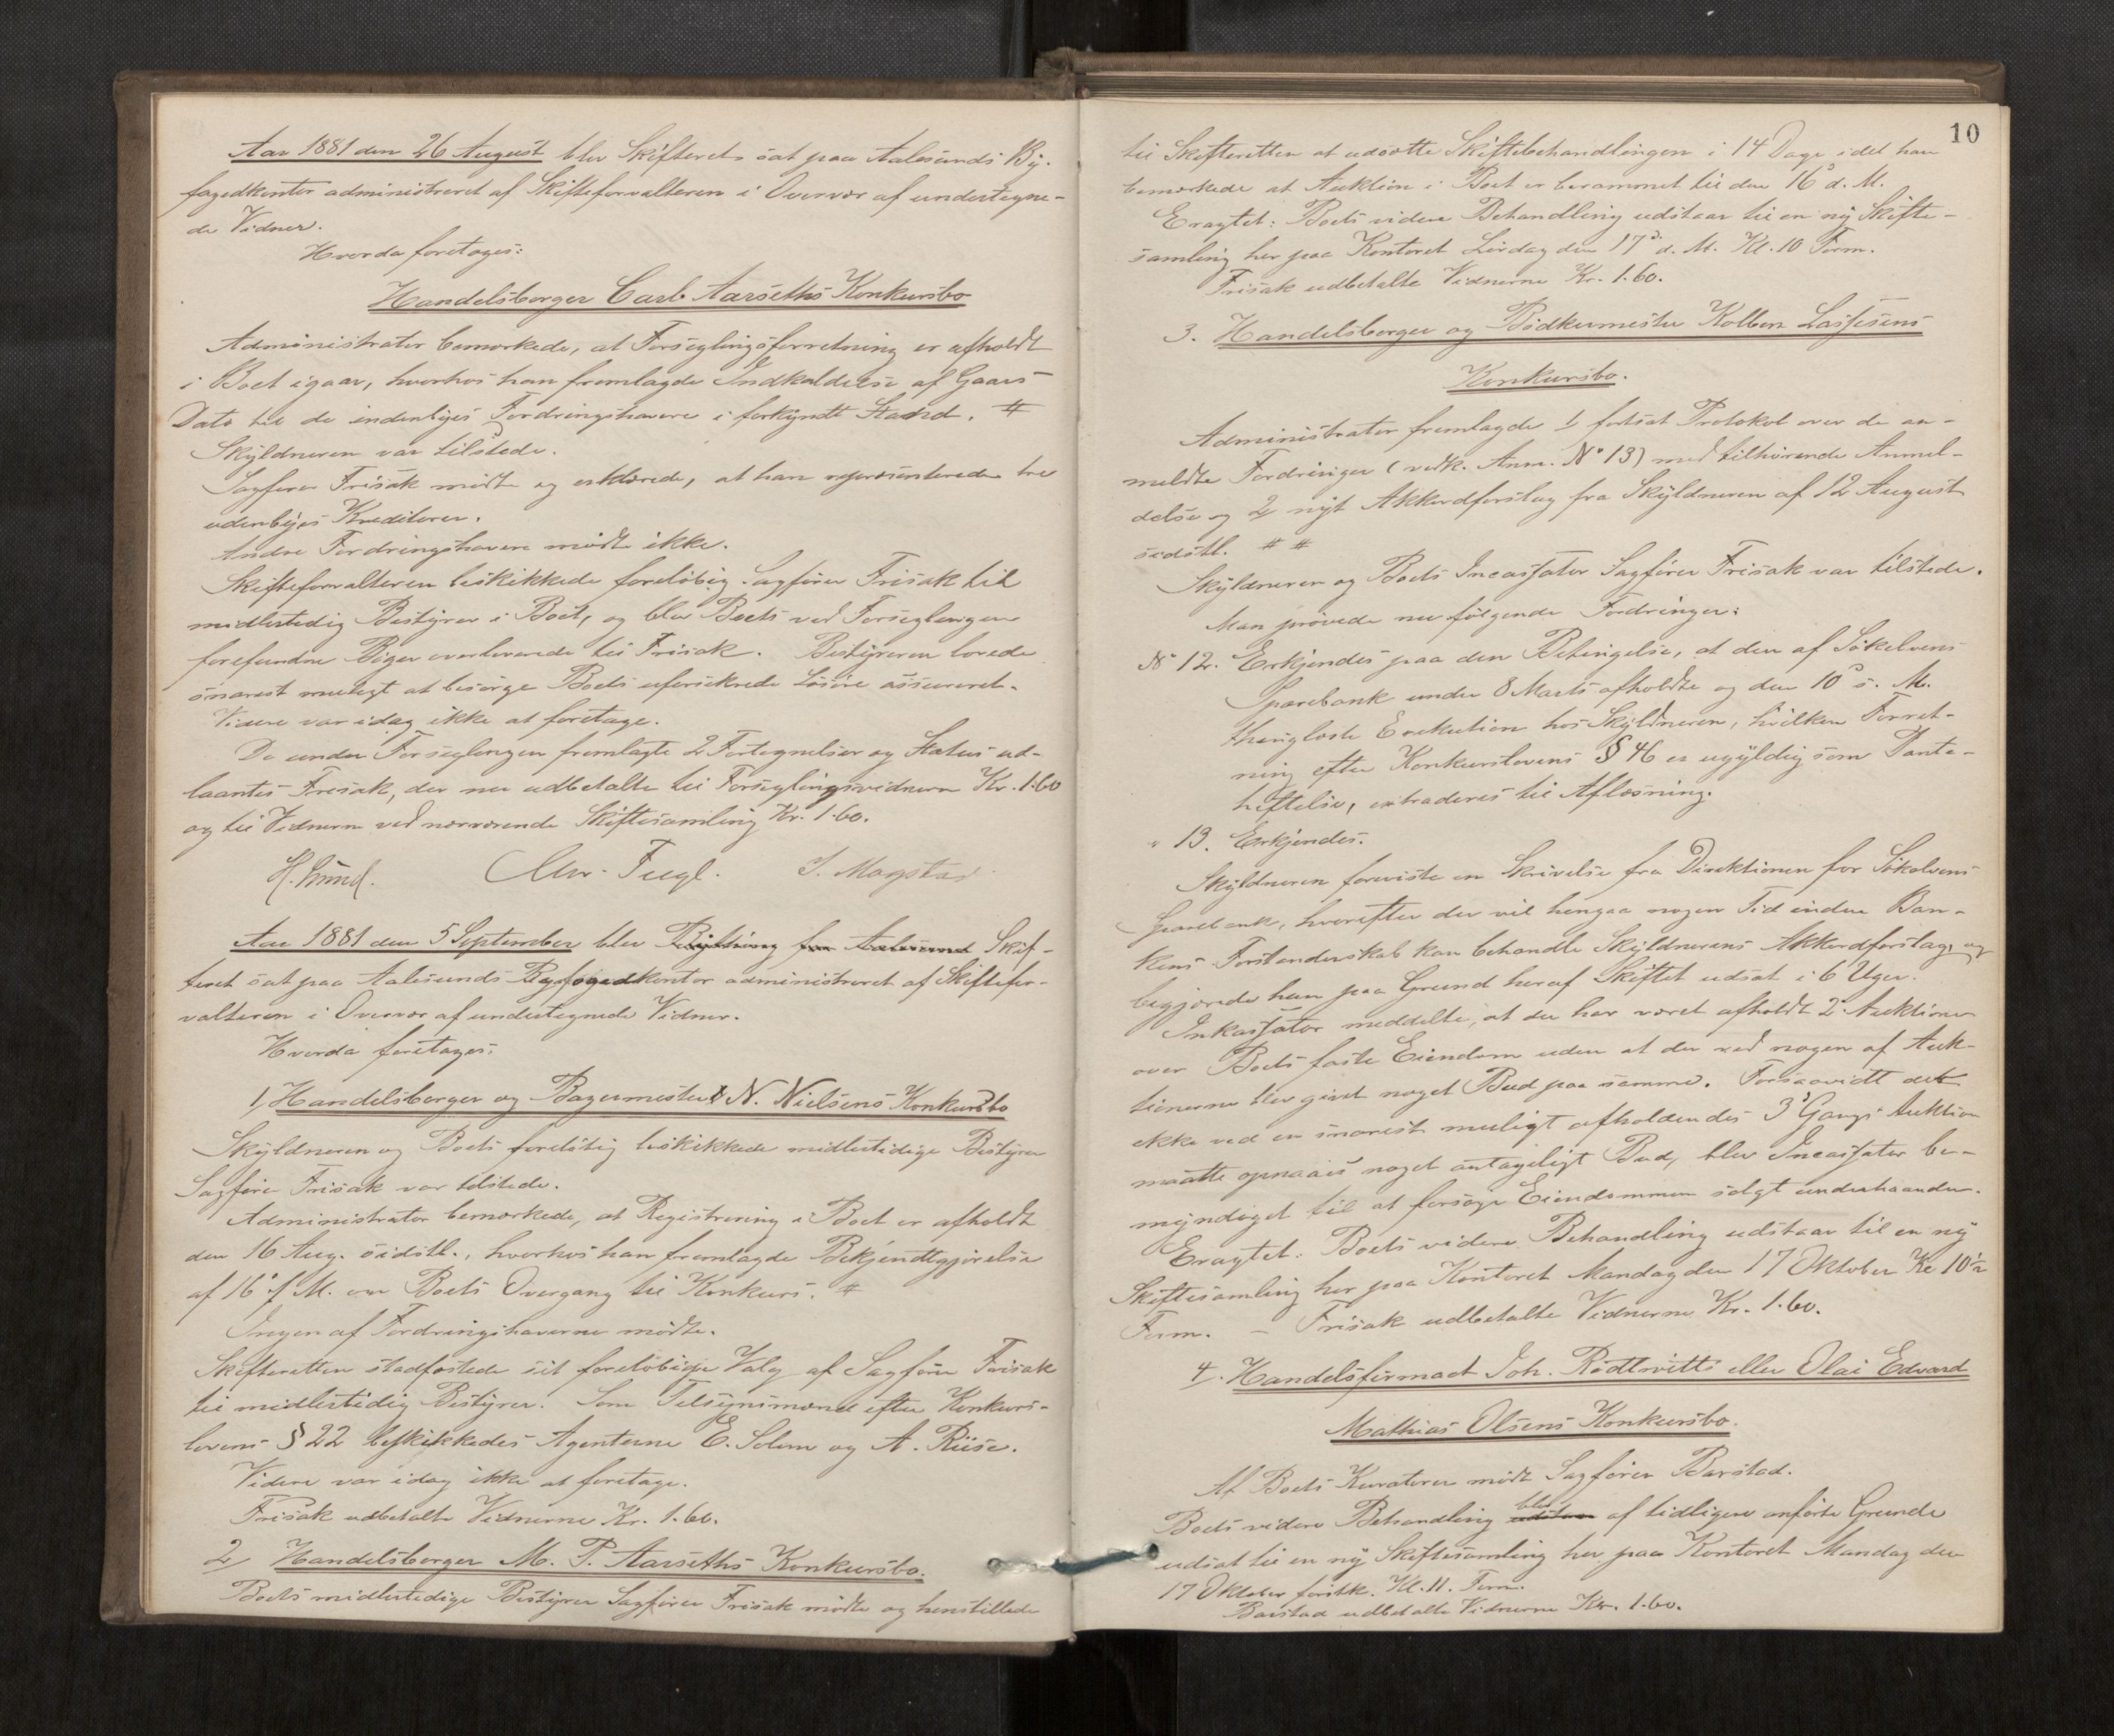 Aar 1881 den 26 August blev Skifteret sat paa Aalesunds By-
fogedkontor administreret af Skifteforvalteren i Overvær af undertegne-
de Vidner.
Hvorda foretoges:
Handelsborger Carl Aarseths Konkursbo
Administrator bemærkede, at Forseglingsforretning er afholdt
i Boet igaar, hvorhos han fremlagde Indkaldelse af Gaars
Dato til de indenbyes Fordringshavere i forkyndt Stand. #
Skyldneren var tilstede.
Sagfører Frisak mødte og erklærede, at han repræsenterede tre
udenbyes Kreditorer.
Andre Fordringshavere mødte ikke.
Skifteforvalteren beskikkede foreløbig Sagfører Frisak til
midlertidig Bestyrer i Boet, og blev Boets ved Forseglingen
forefundne Bøger overleverede til Frisak. Bestyreren lovede
snarest muligt at besørge Boets uforsikrede Løsøre assureret.
Videre var idag ikke at foretage.
De under Forseglingen fremlagte 2 Fortegnelser og Status ud-
laantes Frisak, der nu udbetalte til Forseglingsvidnerne Kr. 1.60
og til Vidnerne ved nærværende Skiftesamling Kr. 1.60.
H. Lund. Chr. Fugl. J. Magstad
Aar 1881 den 5 September blev Bything for Aalesund Skif-
teret sat paa Aalesunds Byfogedkontor administreret af Skiftefor-
valteren i Overvær af undertegnede Vidner.
Hvorda foretages:
1, Handelsborger og Bagermester N. Nielsens Konkursbo
Skyldneren og Boets foreløbig beskikkede midlertidige Bestyrer
Sagfører Frisak var tilstede.
Administrator bemærkede, at Registrering i Boet er afholdt
den 16 Aug. sidstl., hvorhos han fremlagde Bekjendtgjørelse
af 16 f. M. om Boets Overgang til Konkurs. #
Ingen af Fordringshaverne mødte.
Skifteretten stadfæstede sit foreløbige Valg af Sagfører Frisak
til midlertidig Bestyrer. Som Tilsynsmænd efter Konkurs-
lovens § 22 beskikkedes Agenterne E. Solem og A. Riise.
Videre var idag ikke at foretage.
Frisak udbetalte Vidnerne Kr. 1.60.
2, Handelsborger M. P. Aarseths Konkursbo.
Boets midlertidige Bestyrer Sagfører Frisak mødte og henstillede
10
til Skifteretten at udsætte Skiftebehandlingen i 14 Dage idet han
bemærkede at Auktion i Boet er berammet til den 16de d. M.
Eragtet: Boets videre Behandling udstaar til en ny Skifte-
samling her paa Kontoret Lørdag den 17de d. M. Kl. 10 Form.
Frisak udbetalte Vidnerne Kr. 1.60.
3. Handelsborger og Bødkermester Kolben Lassesens
Konkursbo.
Administrator fremlagde 1, fortsat Protokol over de an-
meldte Fordringer (vedk. Anm. No 13) med tilhørende Anmel-
delse og 2, nyt Akkordforslag fra Skyldneren af 12 August
sidstl. # #
Skyldneren og Boets Incassator Sagfører Frisak var tilstede.
Man prøvede nu følgende Fordringer:
No 12. Erkjendes paa den Betingelse, at den af Søkelvens
Sparebank under 8 Marts afholdte og den 10de s. M.
thinglæste Exekution hos Skyldneren, hvilken Forret-
ning efter Konkurslovens § 46 er ugyldig som Pante-
heftelse, extraderes til Aflæsning.
" 13. Erkjendes.
Skyldneren foreviste en Skrivelse fra Direktionen for Søkelvens
Sparebank, hvorefter der vil hengaa nogen Tid inden Ban-
kens Forstanderskab kan behandle Skyldnerens Akkordforslag, og
begjærede han paa Grund heraf Skiftet udsat i 6 Uger.
Inkassator meddelte, at der har været afholdt 2 Auktioner
over Boets faste Eiendom uden at der ved nogen af Auk-
tionerne blev givet noget Bud paa samme. Forsaavidt det
ikke ved en snarest muligt afholdendes 3die Gangs Auktion
maatte opnaaes noget antageligt Bud, blev Incassator be-
myndiget til at forsøge Eiendommen solgt underhaanden.
Eragtet: Boets videre Behandling udstaar til en ny
Skiftesamling her paa Kontoret Mandag den 17 Oktober Kl 10½
Form. – Frisak udbetalte Vidnerne Kr. 1.60.
4. Handelsfirmaet Joh. Rødtwitts eller Olai Edvard
Mathias Olsens Konkursbo.
Af Boets Kuratorer mødte Sagfører Barstad.
Boets videre Behandling udstaar blev af tidligere anførte Grunde
udsat til en ny Skiftesamling her paa Kontoret Mandag den
17 Oktober førstk. Kl. 11. Form.
Barstad udbetalte Vidnerne Kr. 1.60.